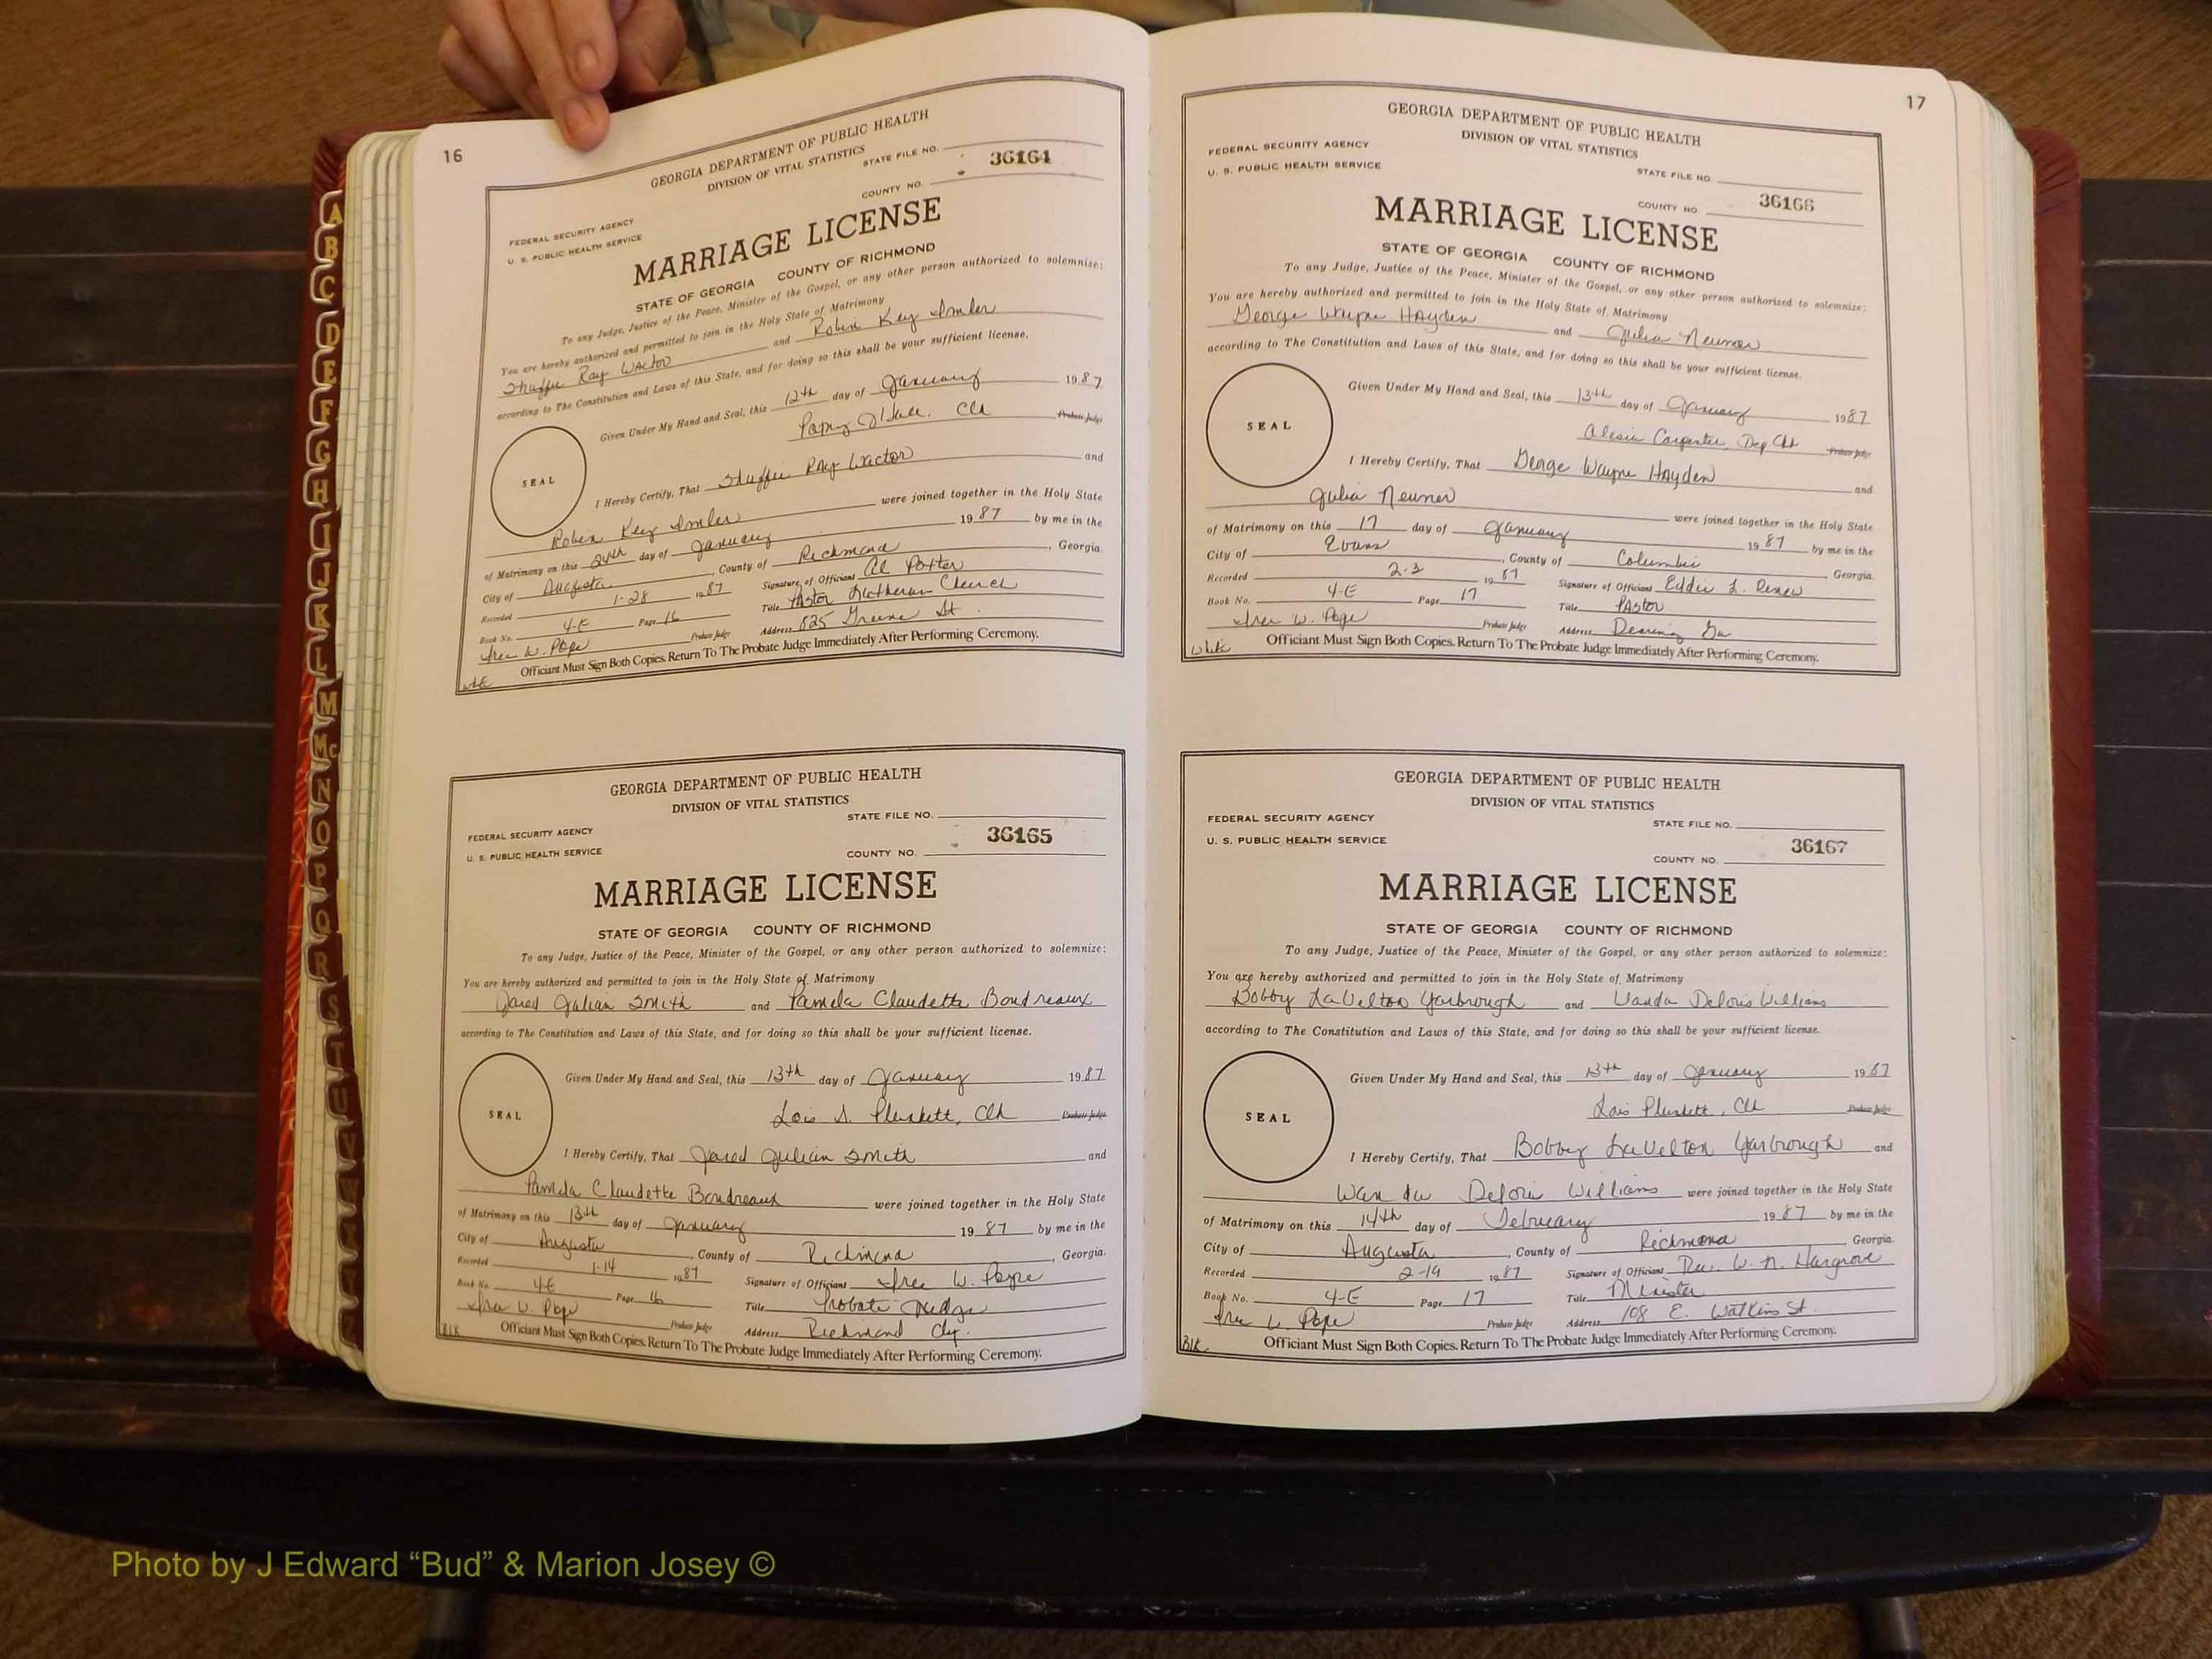 16
GEORGIA DEPARTMENT OF PUBLIC HEALTH
DIVISION OF VITAL STATISTICS
STATE FILE NO.
36164
COUNTY NO.
FEDERAL SECURITY AGENCY
U. S. PUBLIC HEALTH SERVICE
MARRIAGE LICENSE
STATE OF GEORGIA COUNTY OF RICHMOND
To any Judge, Justice of the Peace, Minister of the Gospel, or any other person authorized to solemnize:
You are hereby authorized and permitted to join in the Holy State of Matrimony
Ray Wactor and Robin Key Imler
according to The Constitution and Laws of this State, and for doing so this shall be your sufficient license.
Given Under My Hand and Seal, this 12th day of January 1987
Clk Probate Judge
SEAL
I Hereby Certify, That Ray Wactor and
Robin Key Imler were joined together in the Holy State
of Matrimony on this 24th day of January 1987 by me in the
City of Augusta, County of Richmond, Georgia.
Recorded 1-28 1987 Signature of Officiant Al Potter
Book No. 4-E Page 16 Title Pastor Lutheran Church
W. Pope Probate Judge Address 825 Greene St.
Officiant Must Sign Both Copies. Return To The Probate Judge Immediately After Performing Ceremony.
GEORGIA DEPARTMENT OF PUBLIC HEALTH
DIVISION OF VITAL STATISTICS
STATE FILE NO.
FEDERAL SECURITY AGENCY
36165
U. S. PUBLIC HEALTH SERVICE
COUNTY NO.
MARRIAGE LICENSE
STATE OF GEORGIA COUNTY OF RICHMOND
To any Judge, Justice of the Peace, Minister of the Gospel, or any other person authorized to solemnize:
You are hereby authorized and permitted to join in the Holy State of Matrimony
Jared Julian Smith and Pamela Claudette Boudreaux
according to The Constitution and Laws of this State, and for doing so this shall be your sufficient license.
Given Under My Hand and Seal, this 13th day of January 1987
Lois S. Plunkett, Clk Probate Judge
SEAL
I Hereby Certify, That Jared Julian Smith and
Pamela Claudette Boudreaux were joined together in the Holy State
of Matrimony on this 13th day of January 1987 by me in the
City of Augusta, County of Richmond, Georgia.
Recorded 1-14 1987 Signature of Officiant W. Pope
Book No. 4-E Page 16 Title Probate Judge
W. Pope Probate Judge Address Richmond Cty.
Blk
Officiant Must Sign Both Copies. Return To The Probate Judge Immediately After Performing Ceremony.
17
GEORGIA DEPARTMENT OF PUBLIC HEALTH
DIVISION OF VITAL STATISTICS
FEDERAL SECURITY AGENCY
U. S. PUBLIC HEALTH SERVICE
STATE FILE NO.
36166
COUNTY NO
MARRIAGE LICENSE
STATE OF GEORGIA COUNTY OF RICHMOND
To any Judge, Justice of the Peace, Minister of the Gospel, or any other person authorized to solemnize:
You are hereby authorized and permitted to join in the Holy State of Matrimony
George Wayne Hayden and Julia Neuner
according to The Constitution and Laws of this State, and for doing so this shall be your sufficient license.
Given Under My Hand and Seal, this 13th day of January 1987
Alesia Carpenter, Dep Clk Probate Judge
SEAL
I Hereby Certify, That George Wayne Hayden and
Julia Neuner were joined together in the Holy State
of Matrimony on this 17 day of January 1987 by me in the
City of Evans, County of Columbia, Georgia.
Recorded 2-2 1987 Signature of Officiant Eddie L.
Book No. 4-E Page 17 Title Pastor
W. Pope Probate Judge Address Dearing Ga
White
Officiant Must Sign Both Copies. Return To The Probate Judge Immediately After Performing Ceremony.
GEORGIA DEPARTMENT OF PUBLIC HEALTH
DIVISION OF VITAL STATISTICS
FEDERAL SECURITY AGENCY
STATE FILE NO.
U. S. PUBLIC HEALTH SERVICE
36167
COUNTY NO.
MARRIAGE LICENSE
STATE OF GEORGIA COUNTY OF RICHMOND
To any Judge, Justice of the Peace, Minister of the Gospel, or any other person authorized to solemnize:
You are hereby authorized and permitted to join in the Holy State of Matrimony
Bobby LaVelton Yarbrough and Wanda Deloris Williams
according to The Constitution and Laws of this State, and for doing so this shall be your sufficient license.
Given Under My Hand and Seal, this 13th day of January 1987
Lois Plunkett, Clk Probate Judge
SEAL
I Hereby Certify, That Bobby LaVelton Yarbrough and
Wanda Deloris Williams were joined together in the Holy State
of Matrimony on this 14th day of February 1987 by me in the
City of Augusta, County of Richmond, Georgia.
Recorded 2-19 1987 Signature of Officiant Rev. W. N. Hargrove
Book No. 4-E Page 17 Title Minister
W. Pope Probate Judge Address 108 E. Watkins St.
Blk.
Officiant Must Sign Both Copies. Return To The Probate Judge Immediately After Performing Ceremony.
A
B
C
D
E
F
G
H
I
J
K
L
M
Mc
N
O
P
Q
R
S
T
U
Photo by J Edward “Bud” & Marion Josey ©